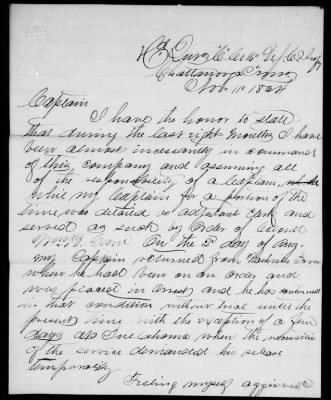 Chattanooga Tenn
Nov. 11th 1864
Captain
I have the honor to state
that during the last eight months I have
been almost incessantly in command
of this company and assuming all
of the responsibility of a Captain,
while my Captain for a portion of the
time was detailed as adjutant and
served as such by order of
On the 5th day of Aug.
my Captain returned from Nashville Tenn
when he had been on an order and
was placed in arrest and he has continued
in that condition without trial until the
present time with the exception of a few
days at Tullahoma when the necessities
of the service demanded his release
temporarily
Feeling myself aggrieved